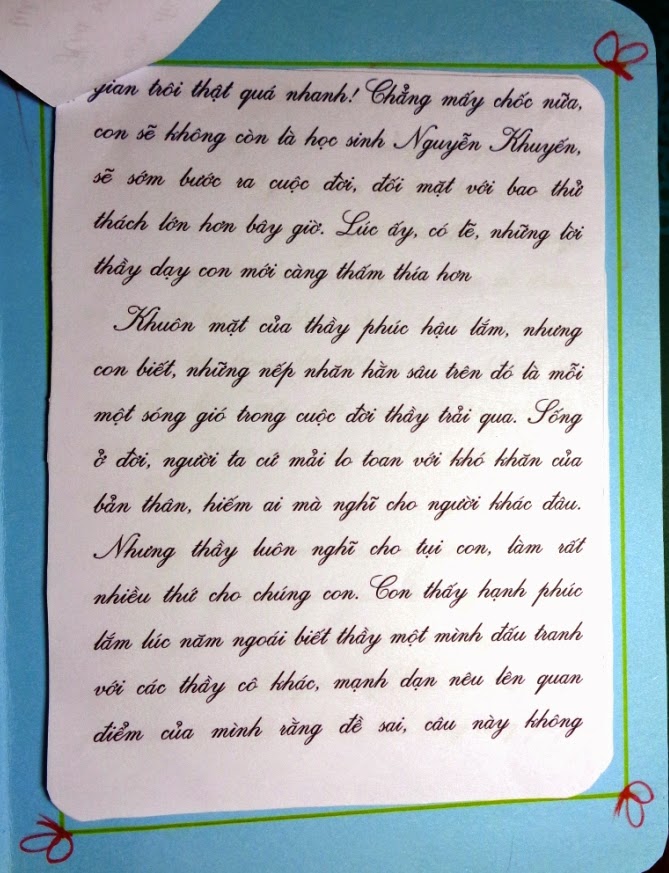 gian trôi thật quá nhanh! Chẳng mấy chốc nữa,
con sẽ không còn là học sinh Nguyễn Khuyến,
sẽ sớm bước ra cuộc đời, đối mặt với bao thử
thách lớn hơn bây giờ. Lúc ấy, có lẽ, những lời
thầy dạy con mới càng thấm thía hơn
Khuôn mặt của thầy phúc hậu lắm, nhưng
con biết, những nếp nhăn hằn sâu trên đó là mỗi
một sóng gió trong cuộc đời thầy trải qua. Sống
ở đời, người ta cứ mải lo toan với khó khăn của
bản thân, hiếm ai mà nghĩ cho người khác đâu.
Nhưng thầy luôn nghĩ cho tụi con, làm rất
nhiều thứ cho chúng con. Con thấy hạnh phúc
lắm lúc năm ngoái biết thầy một mình đấu tranh
với các thầy cô khác, mạnh dạn nêu lên quan
điểm của mình rằng đề sai, câu này không